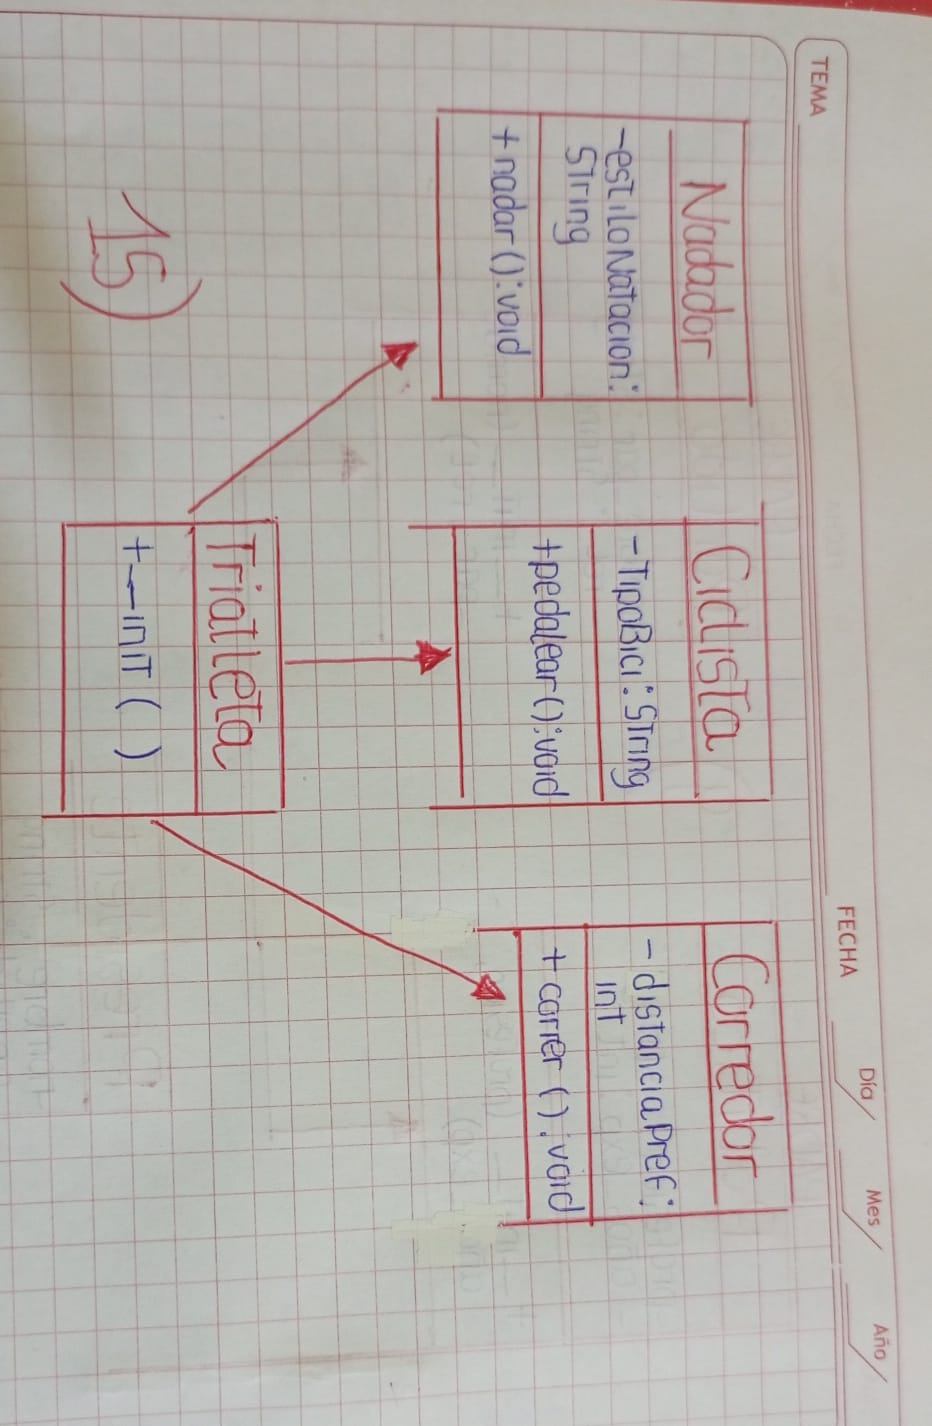 TEMA
FECHA
Día
Mes
Año
Nadador
-estiloNatacion:
String
+nadar():void
Ciclista
-TipoBici:String
+pedalear():void
Corredor
-distanciaPref:
int
+correr():void
Triatleta
+__init()
15)